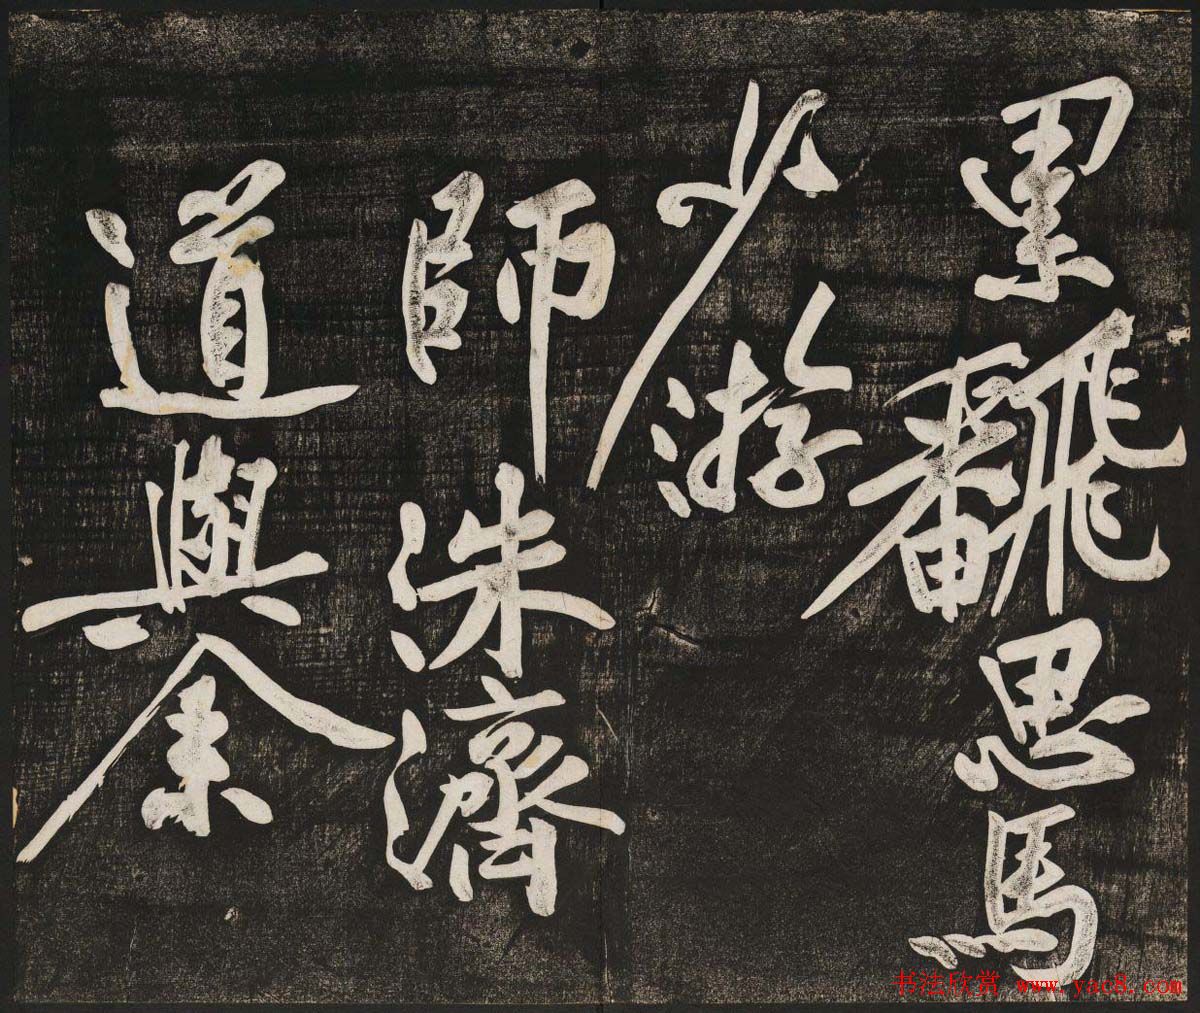 累飜思馬
少游
師洙濟
道與余
书法欣赏 www.yac8.com